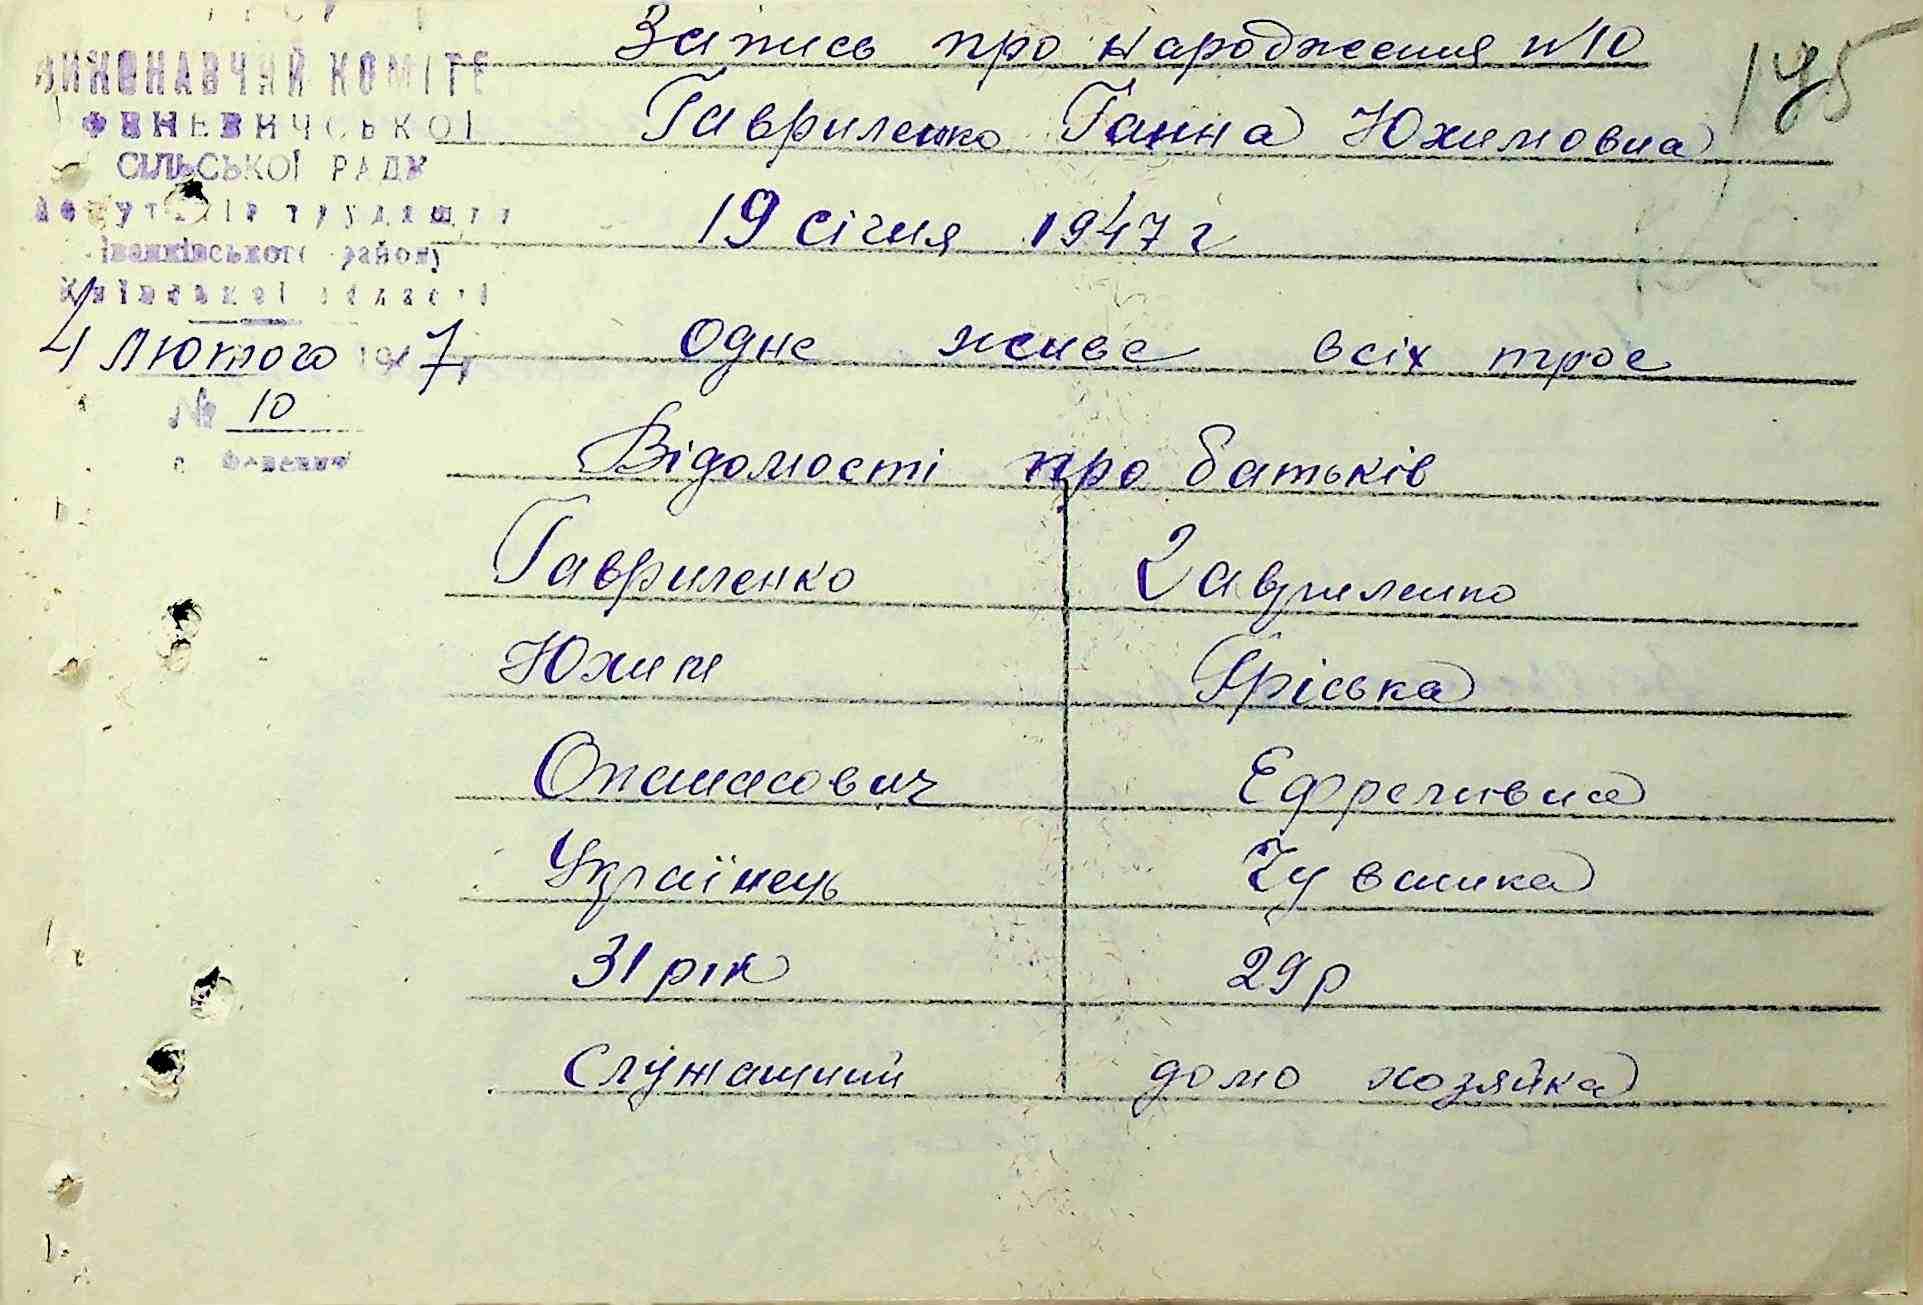 УРСР
ВИКОНАВЧИЙ КОМІТЕ
ФЕНЕВИЧСЬКОЇ
СІЛЬСЬКОЇ РАДИ
депутатів трудящих
Іванківського району
Київської області
4 Лютого 1947
№ 10
с Феневичі
Запись про народження №10
175
Гавриленко Ганна Юхимовна
19 січня 1947 г
Одне живе всіх троє
Відомості про батьків
Гавриленко Гавриленко
Юхим Пріська
Опанасович Ефремівна
Українець Чувашка
31 рік 29 р
Служащий домо хозяйка